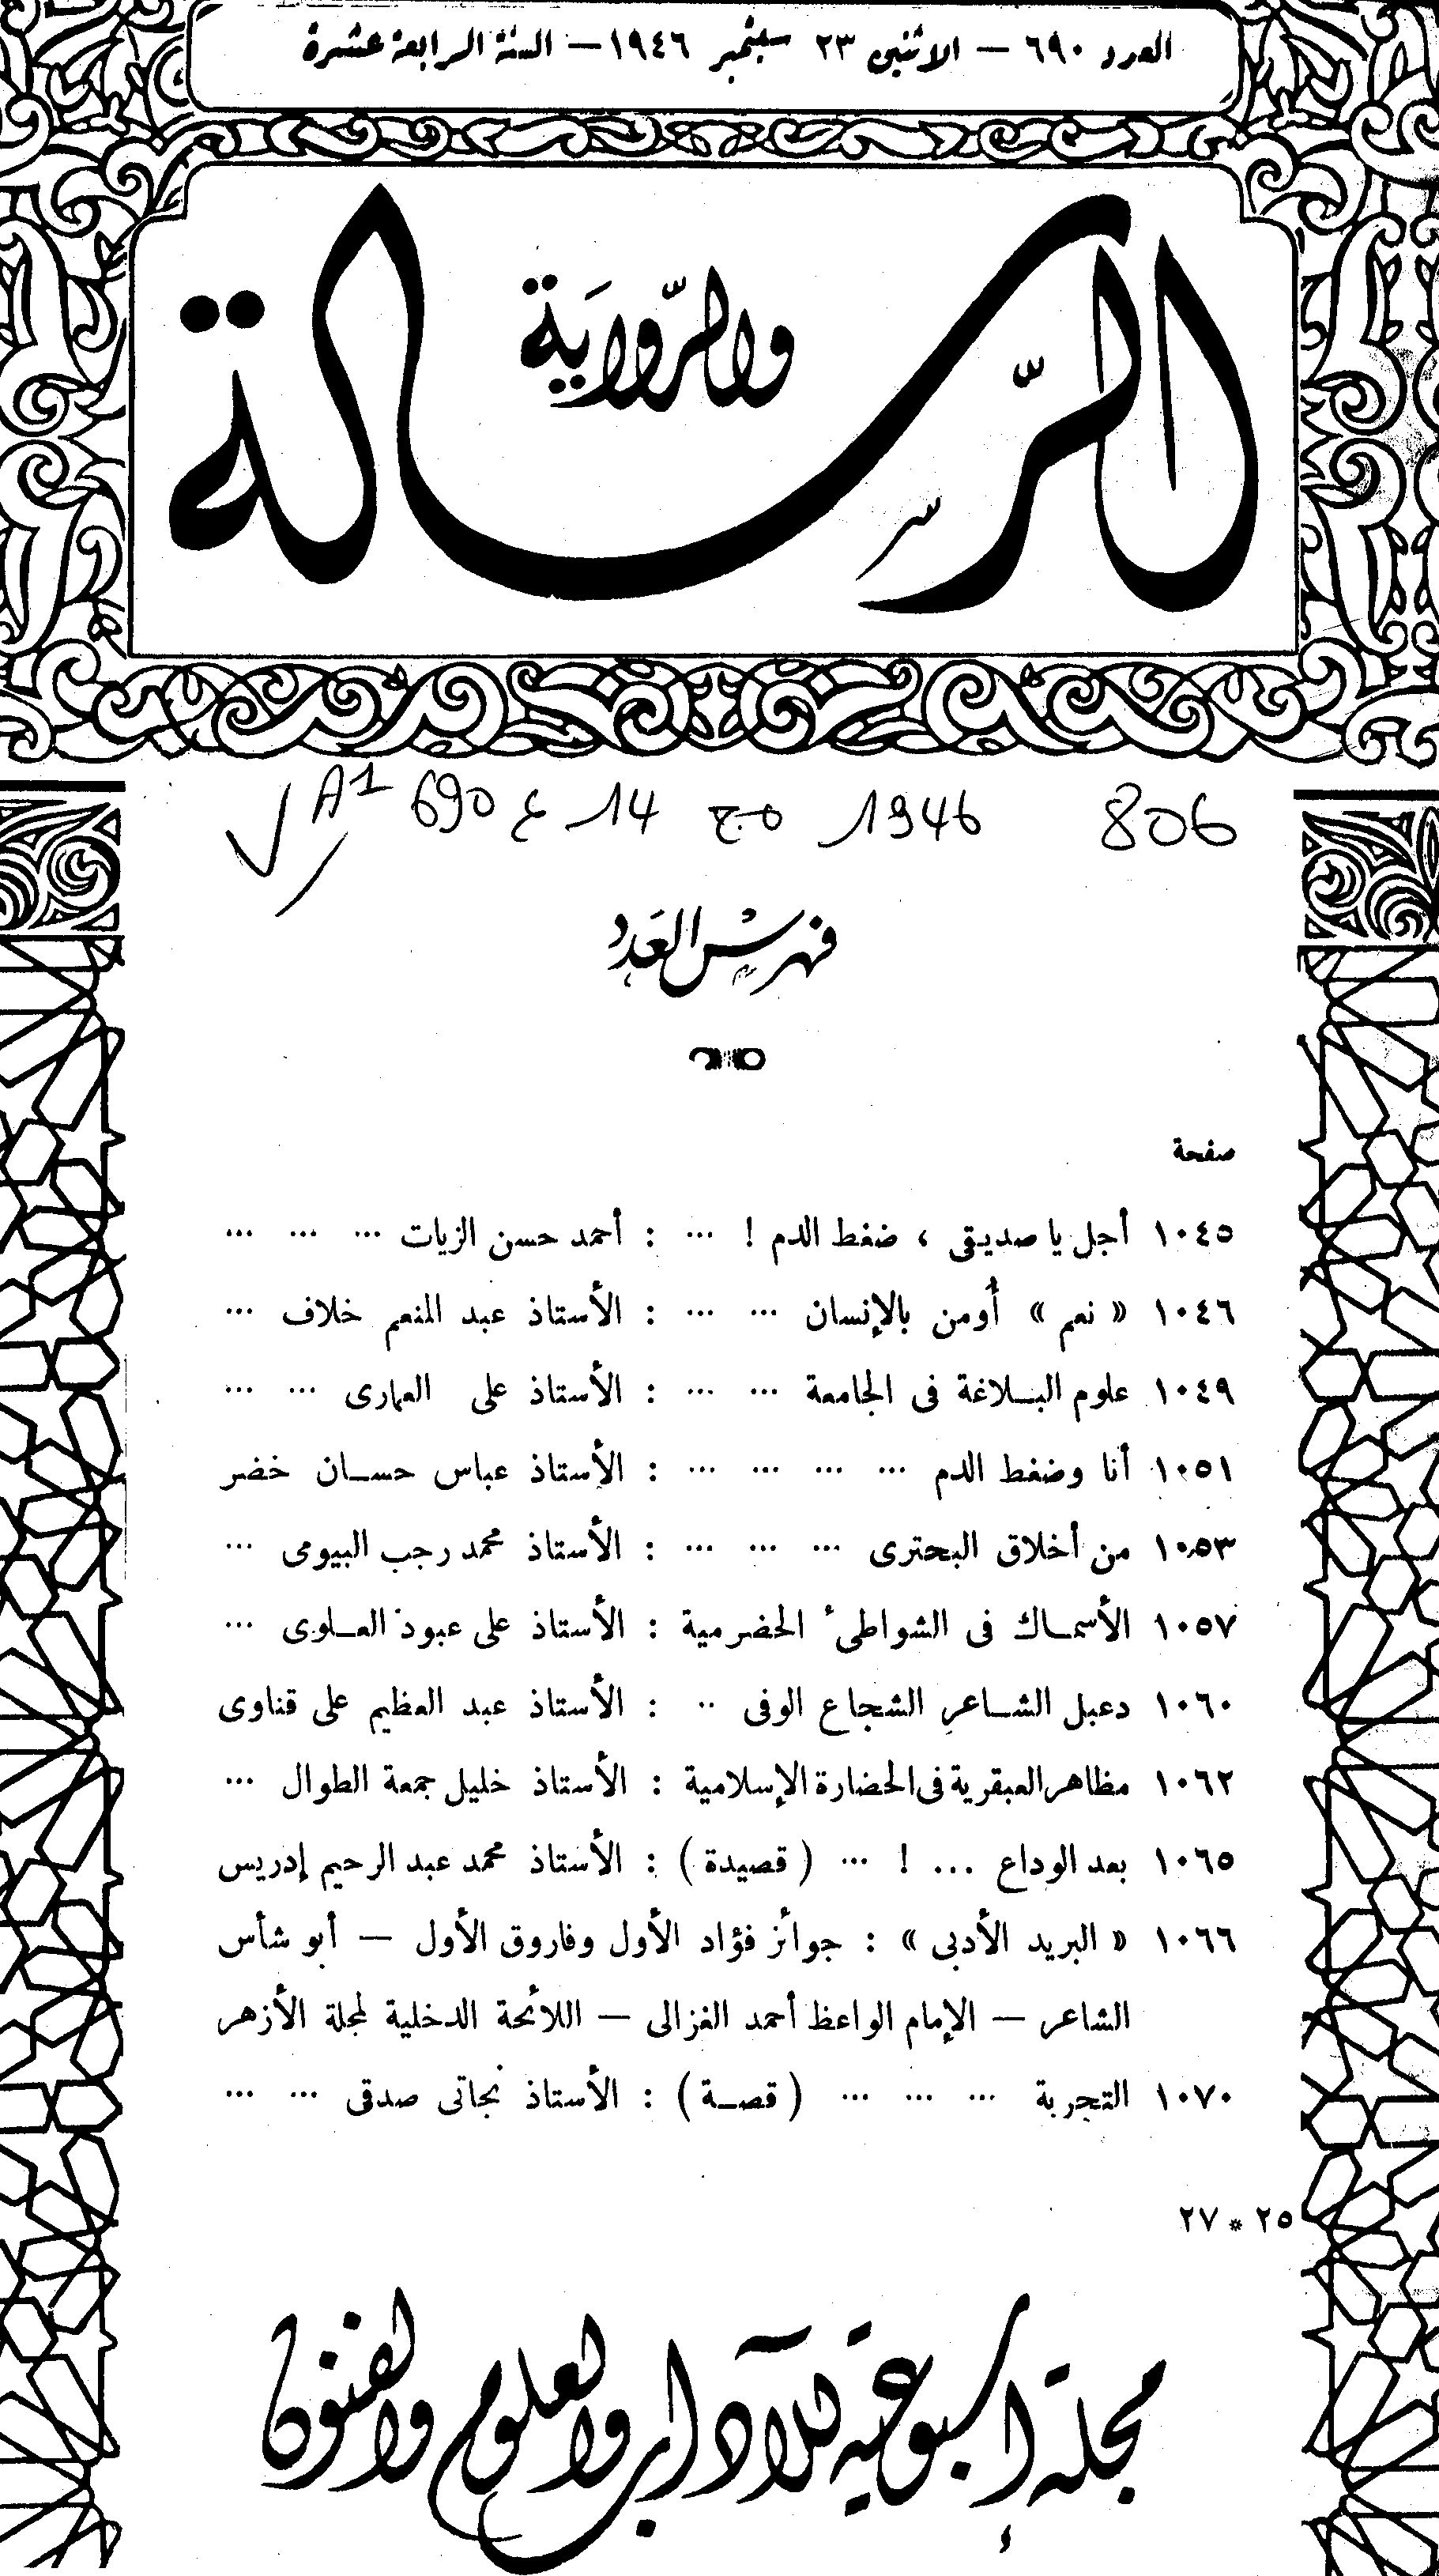 العدد ٦٩٠ — الاثنين ٢٣ سبتمبر ١٩٤٦ — السنة الرابعة عشرة
الرسالة
والرّوايَة
806 1946 مج 14 ع 690 A1
فهرس العَدد
صفحة
١٠٤٥ أجل يا صديقى ، ضغط الدم ! ... : أحمد حسن الزيات ... ... ...
١٠٤٦ « نعم » أُومن بالإنسان ... ... : الأستاذ عبد المنعم خلاف ...
١٠٤٩ علوم البـلاغة فى الجامعة ... ... : الأستاذ على العمارى ... ...
١٠٥١ أنا وضغط الدم ... ... ... ... : الأستاذ عباس حسـان خضر
١٠٥٣ من أخلاق البحترى ... ... ... : الأستاذ محمد رجب البيومى ...
١٠٥٧ الأسمـاك فى الشواطىء الحضرمية : الأستاذ على عبود العـلوى ...
١٠٦٠ دعبل الشـاعر الشجاع الوفى .. : الأستاذ عبد العظيم على قناوى
١٠٦٢ مظاهر العبقرية فى الحضارة الإسلامية : الأستاذ خليل جمعة الطوال ...
١٠٦٥ بعد الوداع ... ! ... ( قصيدة ) : الأستاذ محمد عبد الرحيم إدريس
١٠٦٦ « البريد الأدبى » : جوائز فؤاد الأول وفاروق الأول — أبو شأس
الشاعر — الإمام الواعظ أحمد الغزالى — اللائحة الدخلية لمجلة الأزهر
١٠٧٠ التجربة ... ... ... ( قصـة ) : الأستاذ نجاتى صدقى ... ...
٢٥ * ٢٧
مجلة أسبوعية للآداب والعلوم والفنون